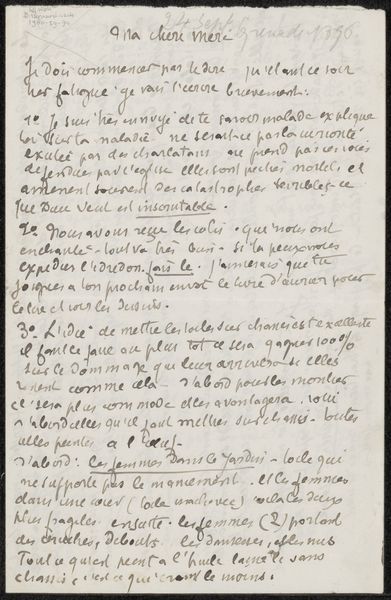 24 Sept
Grenade 1896
Ma chère mère
Je dois commencer par te dire qu'étant ce soir
très fatigué je vais t'écrire brièvement:
1º Je suis très ennuyé de te savoir malade explique
moi sur ta maladie ne se sert pas la curiosité
par des charlatans ne prend pas ces voies
défendues par l'église elles sont péchés mortels et
amènent souvent des catastrophes terribles - ce
que Dieu veut est inscrutable.
2º Nous avons reçu les colis qui nous ont
enchanté - tout va très bien - si tu peux nous
expédier l'édredon fais le. j'aimerais que tu
joignes à ton prochain envoi le livre
3º L'idée de mettre les toiles sur chassis est excellente
il faut le faire au plus tot ce sera gagner 100%
sur le dommage qui leur arrivera si elles
restent comme cela - d'abord pour les montrer
ce sera plus commode elles avantagera. voici
d'abord celles qu'il faut mettre sur chassis - toutes
celles peintes à l'oeuf -
d'abord: les femmes dans le jardin - toile qui
ne supporte pas le maniement. et les femmes
dans une cour (toile ) voilà les deux
plus fragiles ensuite les femmes (2) portant
des cruches, debout. les danseuses, et les nus
Tout ce qui est peint à l'huile laisse le sans
chassis, c'est ce qui craint le moins.